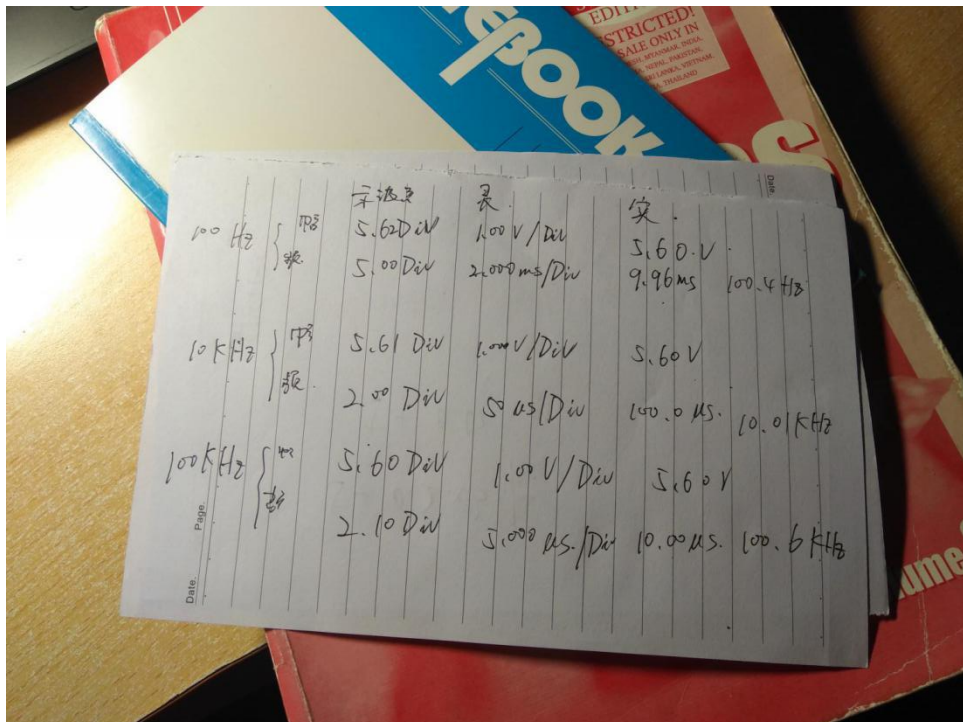 EBOOK
EDITI
STRICTED!
SALE ONLY IN
ESH, MYANMAR, INDIA,
NEPAL, PAKISTAN,
SRI LANKA, VIETNAM
THAILAND
S
Date.
示波 灵. 实.
100 Hz 幅 5.62Div 1.00 V/Div 5.60.V.
5.00Div 2.000ms/Div 9.96ms 100.4Hz
10KHz 幅 5.61 Div 1.000V/Div 5.60V
2.00 Div 50 μs/Div 100.0 μs. 10.01KHz
100KHz 5.60Div 1.00V/Div 5.60V
2.10Div 5.000 μs./Div 10.00μs. 100.6KHz
Page.
Date.
ume